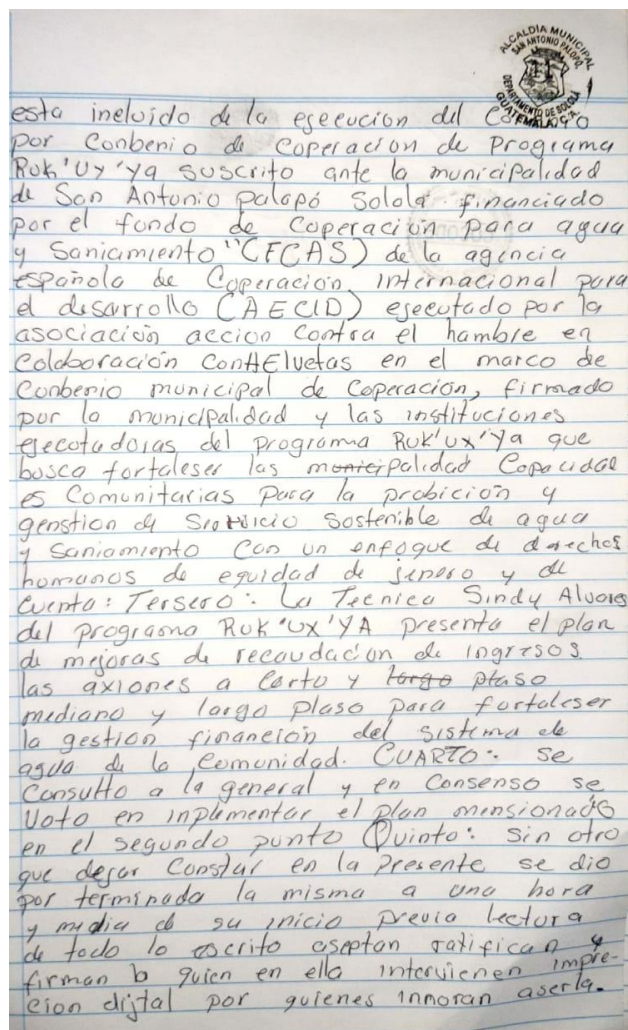 ALCALDIA MUNICIPAL
SAN ANTONIO PALOPÓ
DEPARTAMENTO DE SOLOLÁ
GUATEMALA, C.A.
esta ineluido de la esecucion del
por Conbenio de Coperacion de programa
RUK'UY'Ya suscrito ante la municipalidad
de San Antonio palopó Sololá financiado
por el fondo de Coperación para agua
y Saniamiento "(FCAS) de la agencia
española de Coperación internacional para
el desarrollo (AECID) esecutado por la
asociación accion Contra el hambre en
Coloboración ConHElvetas en el marco de
Conbenio municipal de Coperación, firmado
por la municipalidad y las instituciones
ejecotadoras del programa RUK'ux'Ya que
busca fortaleser las municipalidad Capacidad
es Comunitarias para la probición y
genstion de Servicio sostenible de agua
y Saniamiento Con un enfoque de derechos
humanos de equidad de jenero y de
Cuenta: Tersero: La Tecnica Sindy Alvores
del programa RUK'UX'YA presenta el plan
de mejoras de recaudación de ingresos
las axiones a Corto y largo plaso
mediano y largo plaso para fortaleser
la gestion financion del sistema de
agua de la Comunidad. CUARTO: Se
Consulto a la general y en Consenso se
Voto en inplementar el plan mensionado
en el segundo punto Quinto: Sin otro
que dejar Constar en la presente se dio
por terminada la misma a una hora
y media de su inicio previa lectura
de todo lo escrito aseptan ratifican y
firman lo quien en ello intervienen impre-
cion dijtal por quienes innoran aserla.